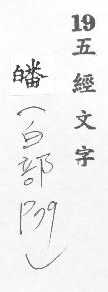 19五經文字
皤（白部P79）